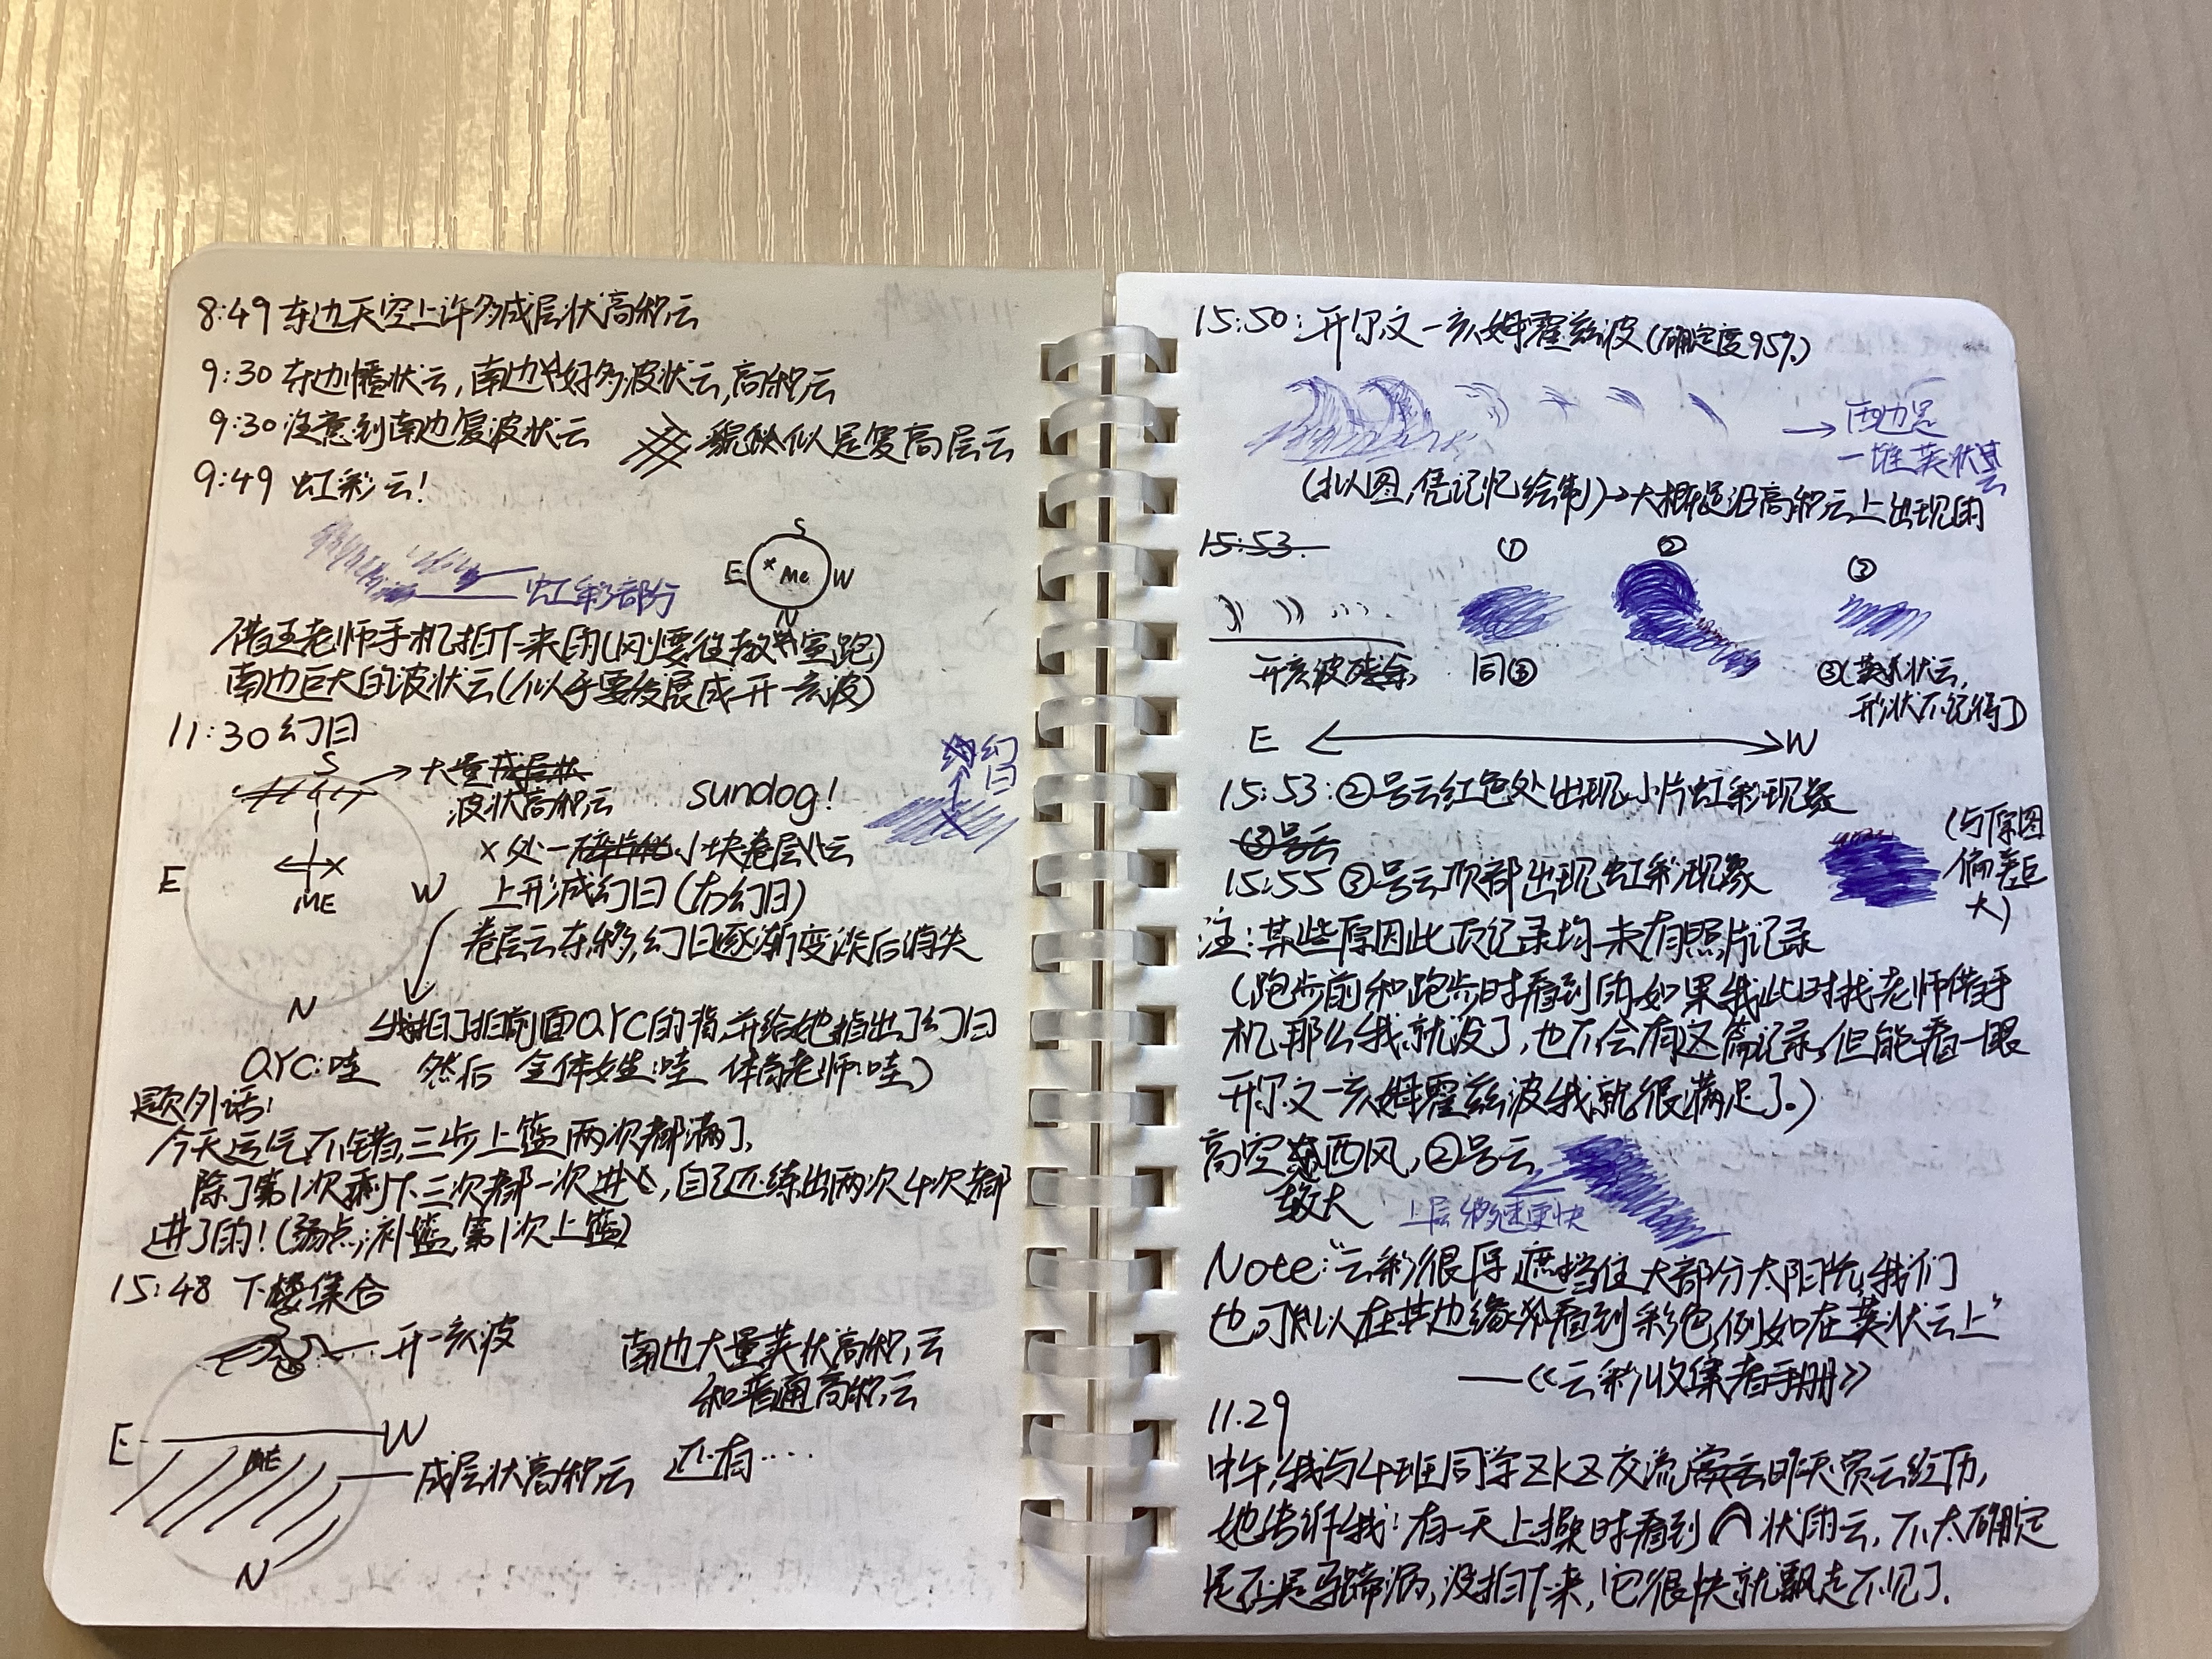 8:49 东边天空上许多成层状高积云
9:30 东边幡状云,南边好多波状云,高积云
9:30 注意到南边复波状云
貌似似是复高层云
9:49 虹彩云!
虹彩部分
S
E
× Me
W
N
借王老师手机拍下来的(风要往教室跑)
南边巨大的波状云(似乎要发展成开-亥波)
11:30 幻日
S
大量成层状
波状高积云
sundog!
幻日
E
×
ME
W
N
×处一碎片化小块卷层云
上形成幻日(右幻日)
卷层云东移,幻日逐渐变淡后消失
我拍了拍前面QYC的背,并给她指出了幻日
QYC:哇 然后 全体女生:哇 体育老师:哇)
题外话!
今天运气不错,三步上篮两次都满了,
除了第1次剩下三次都一次进,自己还练出两次4次都
进了的!(弱点:补篮,第1次上篮)
15:48 下楼集合
S
开-亥波
南边大量荚状高积云
和普通高积云
还有....
E
W
ME
成层状高积云
N
15:50:开尔文-亥姆霍兹波(确定度95%)
→西边是
一堆荚状云
(拟图,凭记忆绘制)→大概是沿高积云上出现的
15:53:
① ② ③
开亥波残余
同③
③(荚状云,
形状不记得了)
E ↔ W
15:53:②号云红色处出现小片虹彩现象
③号云
15:55 ③号云顶部出现虹彩现象
(与原图
偏差巨
大)
注:某些原因此页记录均未有照片记录
(跑步前和跑步时看到的,如果我此时找老师借手
机,那么我就没了,也不会有这篇记录,但能看一眼
开尔文-亥姆霍兹波我就很满足了。)
高空西风,②号云
较大
上层移速更快
Note:“云彩很厚遮挡住大部分太阳光,我们
也可以在其边缘看到彩色,例如在荚状云上”
——《云彩收集者手册》
11.29
中午,我与4班同学ZKZ交流昨天赏云经历,
她告诉我:有一天上操时看到∩状的云,不太确定
是不是马蹄涡,没拍下来,它很快就飘走不见了.